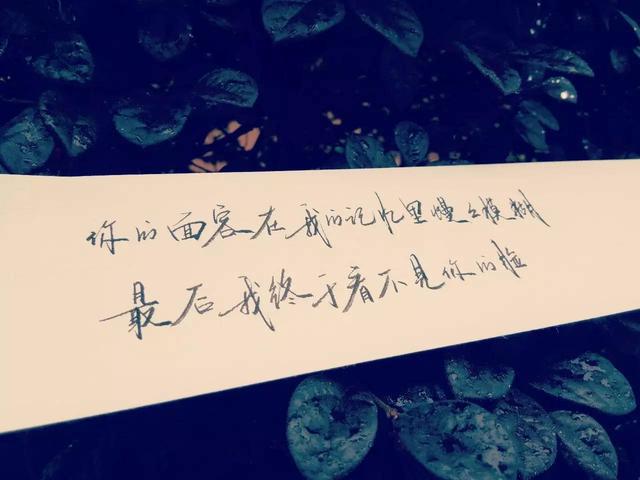 你的面容在我的记忆里慢慢模糊
最后我终于看不见你的脸